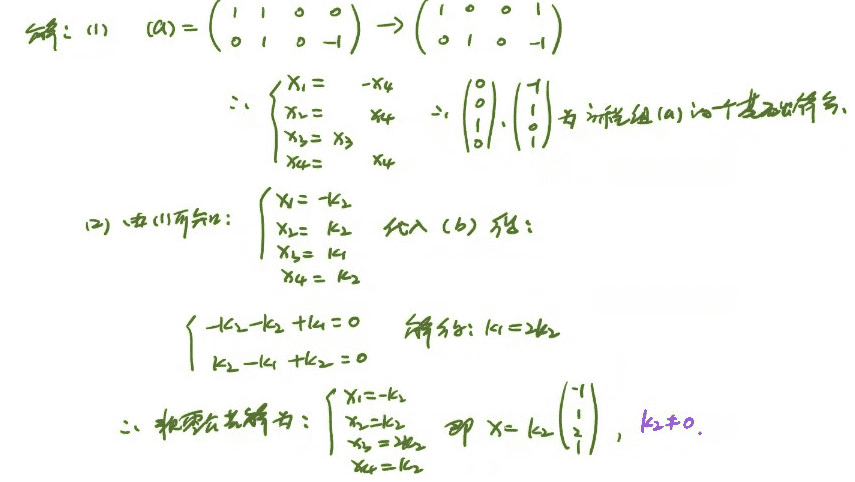 解：(1) (a) = ( 1 1 0 0 ; 0 1 0 -1 ) → ( 1 0 0 1 ; 0 1 0 -1 )
∴ { x₁ = -x₄
x₂ = x₄
x₃ = x₃
x₄ = x₄
∴ (0 0 1 0), (-1 1 0 1) 为方程组(a)的一个基础解系.
(2) 由(1)可知: { x₁ = -k₂
x₂ = k₂
x₃ = k₁
x₄ = k₂
代入(b)得:
{ -k₂-k₂+k₁=0
k₂-k₁+k₂=0
解得: k₁=2k₂
∴ 非零公共解为: { x₁=-k₂
x₂=k₂
x₃=2k₂
x₄=k₂
即 x=k₂(-1 1 2 1), k₂≠0.